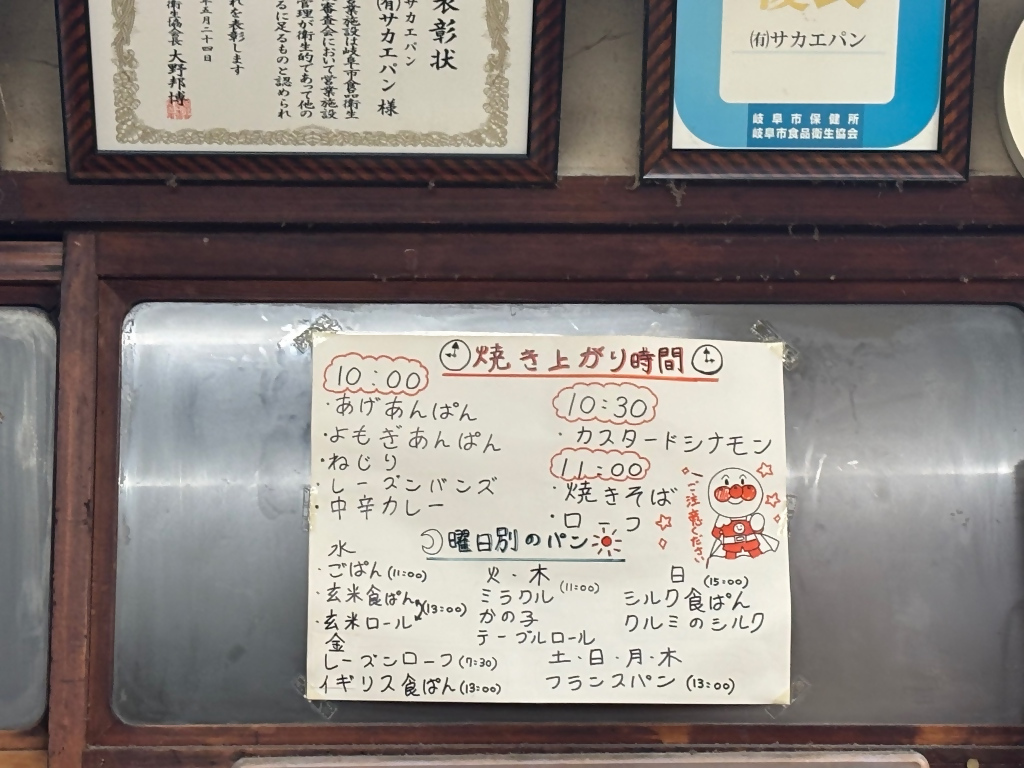 表彰状
(有)サカエパン 様
サカエパン
業施設は岐阜市食品衛生
審査会において営業施設
管理が衛生的であって他の
るに足るものと認められ
れを表彰します
年五月二十四日
大野邦博
(有)サカエパン
岐阜市保健所
岐阜市食品衛生協会
焼き上がり時間
10:00
・あげあんぱん
・よもぎあんぱん
・ねじり
・レーズンバンズ
・中辛カレー
10:30
・カスタードシナモン
11:00
・焼きそば
・ローフ
ご注意ください
曜日別のパン
水
・ごぱん(11:00)
・玄米食ぱん
・玄米ロール
(13:00)
金
レーズンローフ(7:30)
イギリス食ぱん(13:00)
火・木
(11:00)
ミラクル
かの子
テーブルロール
日
(15:00)
シルク食ぱん
クルミのシルク
土・日・月・木
フランスパン (13:00)